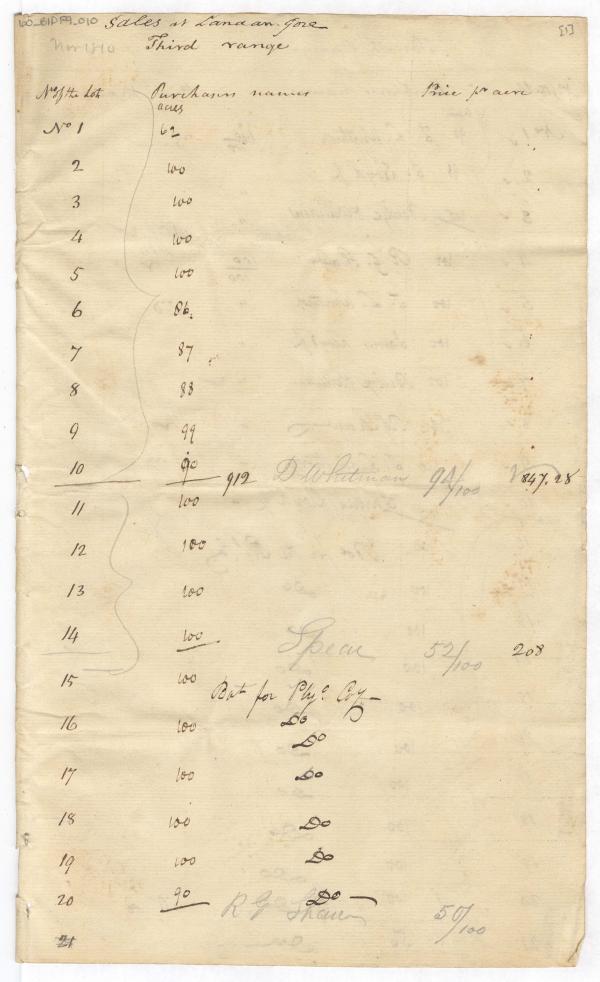 100_BIDF9_010 Sales at Landan Gore [1]
Nov 1810 Third range
No of the Lot Purchasers names Price pr acre
acres
No 1 62
2 100
3 100
4 100
5 100
6 86
7 87
8 88
9 99
10 90 912 D Whitman 94/100 847.28
11 100
12 100
13 100
14 100 Spear 52/100 208
15 100
Bot for Plyo Coy
16 100 Do
Do
17 100 Do
18 100 Do
19 100 Do
20 90 Do
R G Shaw 50/100
21